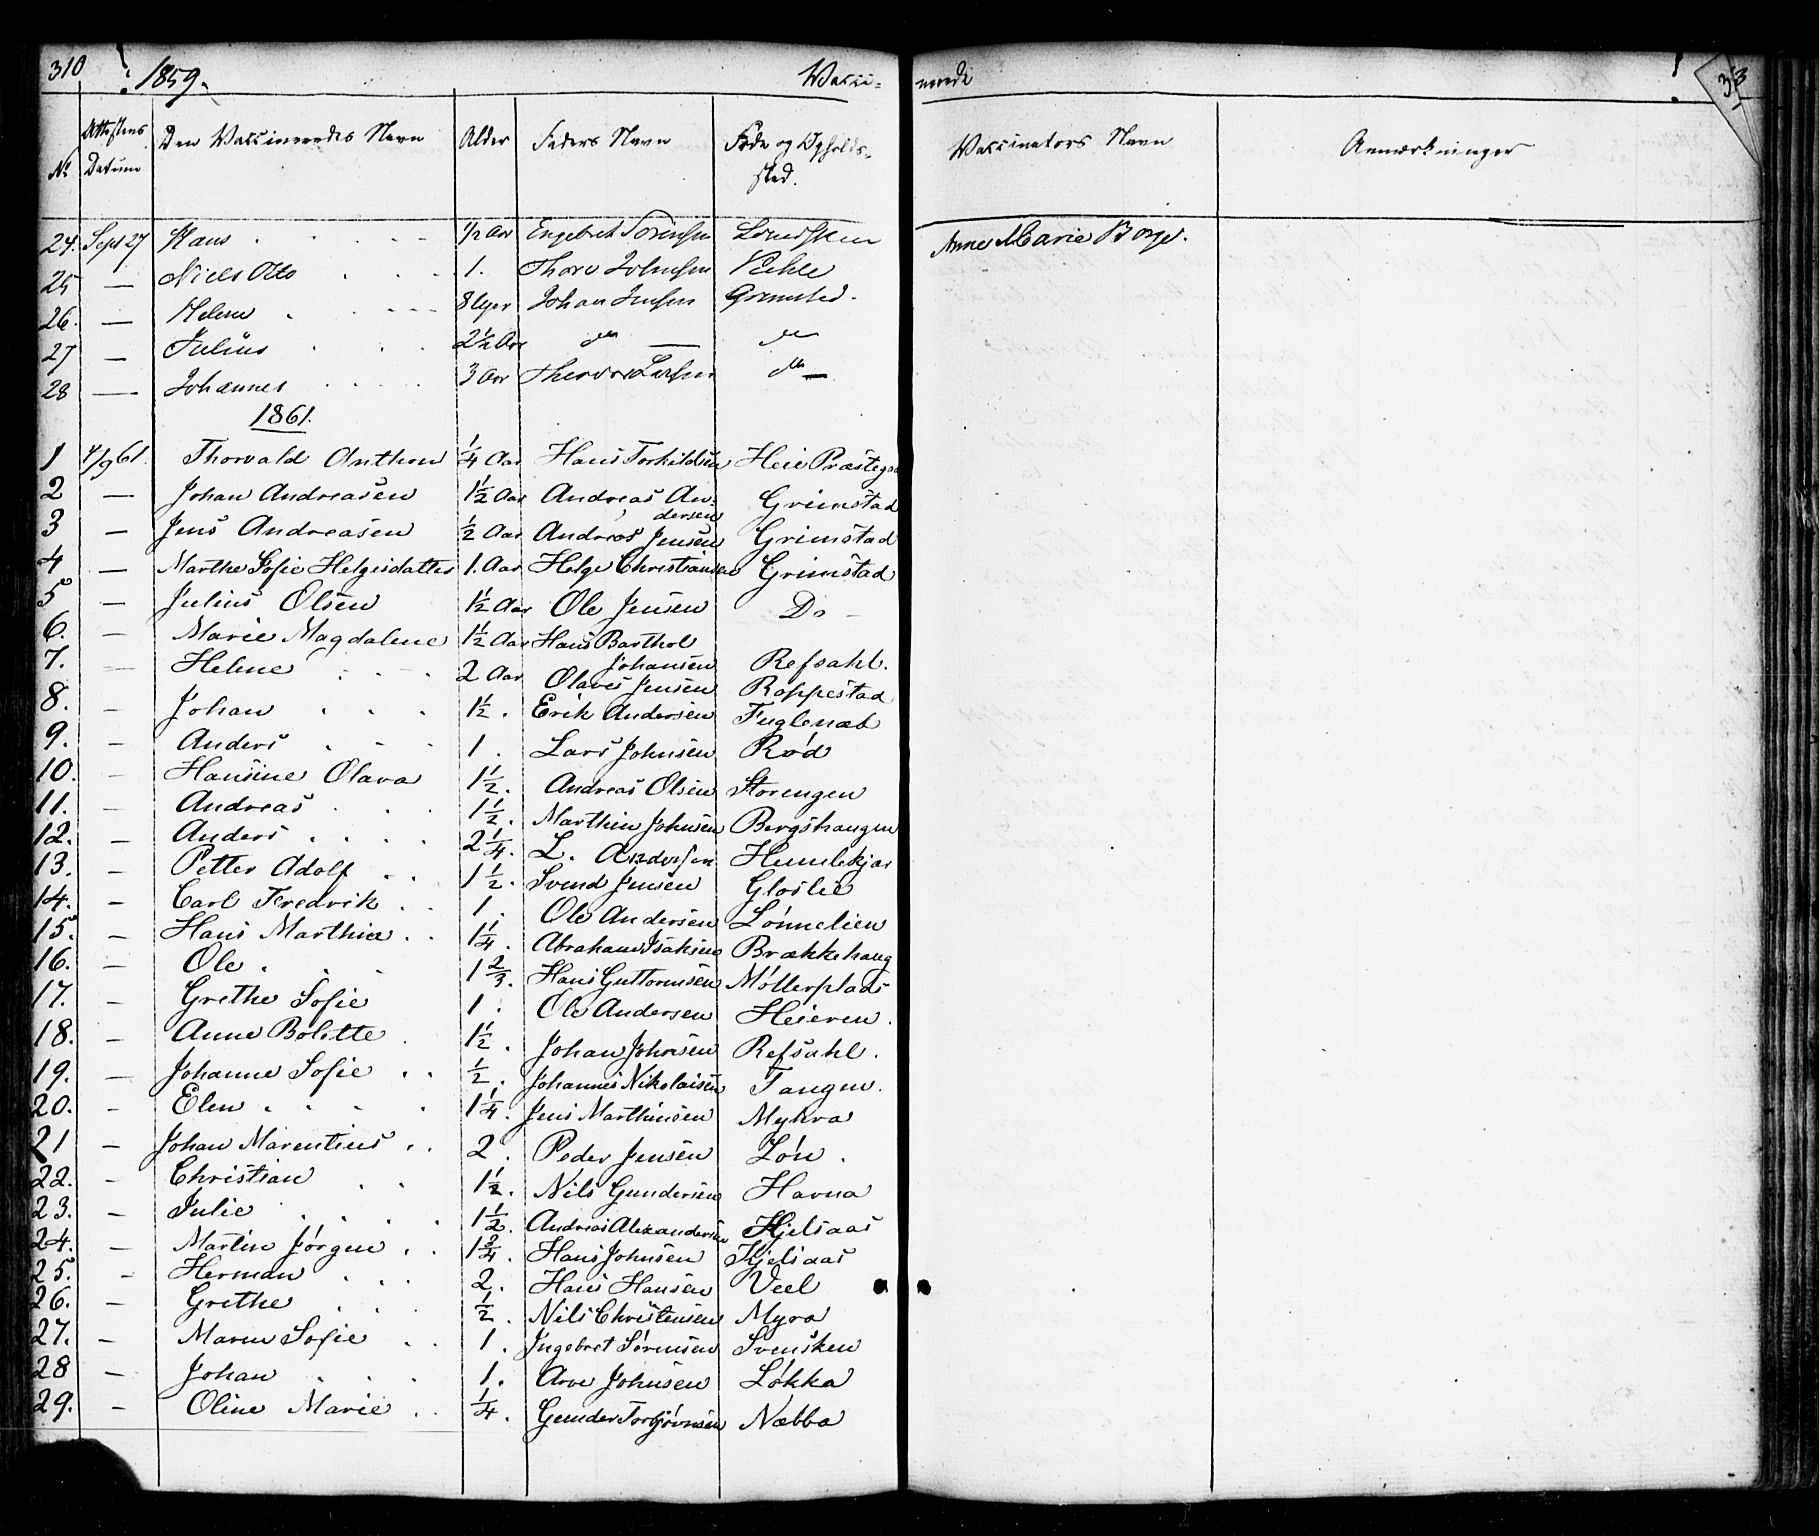 310 1859. Vacci-
nerede
No. Attestens Datum Den Vaccineredes Navn Alder Faders Navn Føde og Opholds-sted. Vaccinators Navn Anmærkninger
24. Sept 27 Hans 1/2 Aar Engebret Sørensen Anne Marie Borge.
25 — Niels Otto 1. Thore Johnsen
26. — Helene 8 Uger Johan Jensen Grimsted.
27 — Julius 2 1/2 Aar do — do
28 — Johannes 3 Aar Larsen do —
1861.
1 4/9 61. Thorvald Anthon 1/4 Aar Hans Torkildsen Heie Præstega
2 — Johan Andreasen 1 1/2 Aar Andreas An-
dersen Grimstad
3 — Jens Andreasen 1/2 Aar Andreas Jensen Grimstad
4 — Marthe Sofie Helgesdatter 1. Aar Helge Christiansen Grimstad
5 — Julius Olsen 1 1/2 Aar Ole Jensen Do —
6. — Marie Magdalene 1 1/2 Aar Hans Barthol
Johansen Refsahl.
7. — Helene 2 Aar Olaves Jensen Roppestad
8. — Johan 1 1/2. Erik Andersen Fuglenæb
9. — Anders 1. Lars Johnsen Rød
10. — Hansine Olava 1 1/2. Andreas Olsen Storengen
11. — Andreas 1 1/2. Marthin Johnsen Bergshaugen
12. — Anders 2 1/4. L. Andersen Humlekjær
13. — Petter Adolf 1 1/2. Svend Jensen Gloslie
14. — Carl Fredrik 1. Ole Andersen Lønnelien
15. — Hans Marthin 1 1/4. Abraham Isaksen Brækkehaug
16. — Ole 1 2/3. Hans Guttormsen Møllerplads
17. — Grethe Sofie 1. Ole Andersen Heieren.
18. — Anne Bolette 1 1/2. Johan Johnsen Refsahl.
19. — Johanne Sofie 1/2. Johannes Nikolaisen Tangen.
20. — Elen 1 1/4. Jens Marthinsen Mykra
21 — Johan Marentius 2. Peder Jensen Løn.
22. — Christian 1 1/2. Nils Gundersen Havna
23. — Julie 1 1/2. Andreas Alexandersen Kjelsaas
24. — Martin Jørgen 1 3/4. Hans Johnsen Kjelsaas
25. — Herman 2. Hans Hansen Veel
26. — Grethe 1/2. Nils Christensen Myra
27. — Maren Sofie 1. Ingebret Sørensen Svensken
28 — Johan 1. Arve Johnsen Løkka
29. — Oline Marie 1/4. Gunder Torbjørnsen Næbba